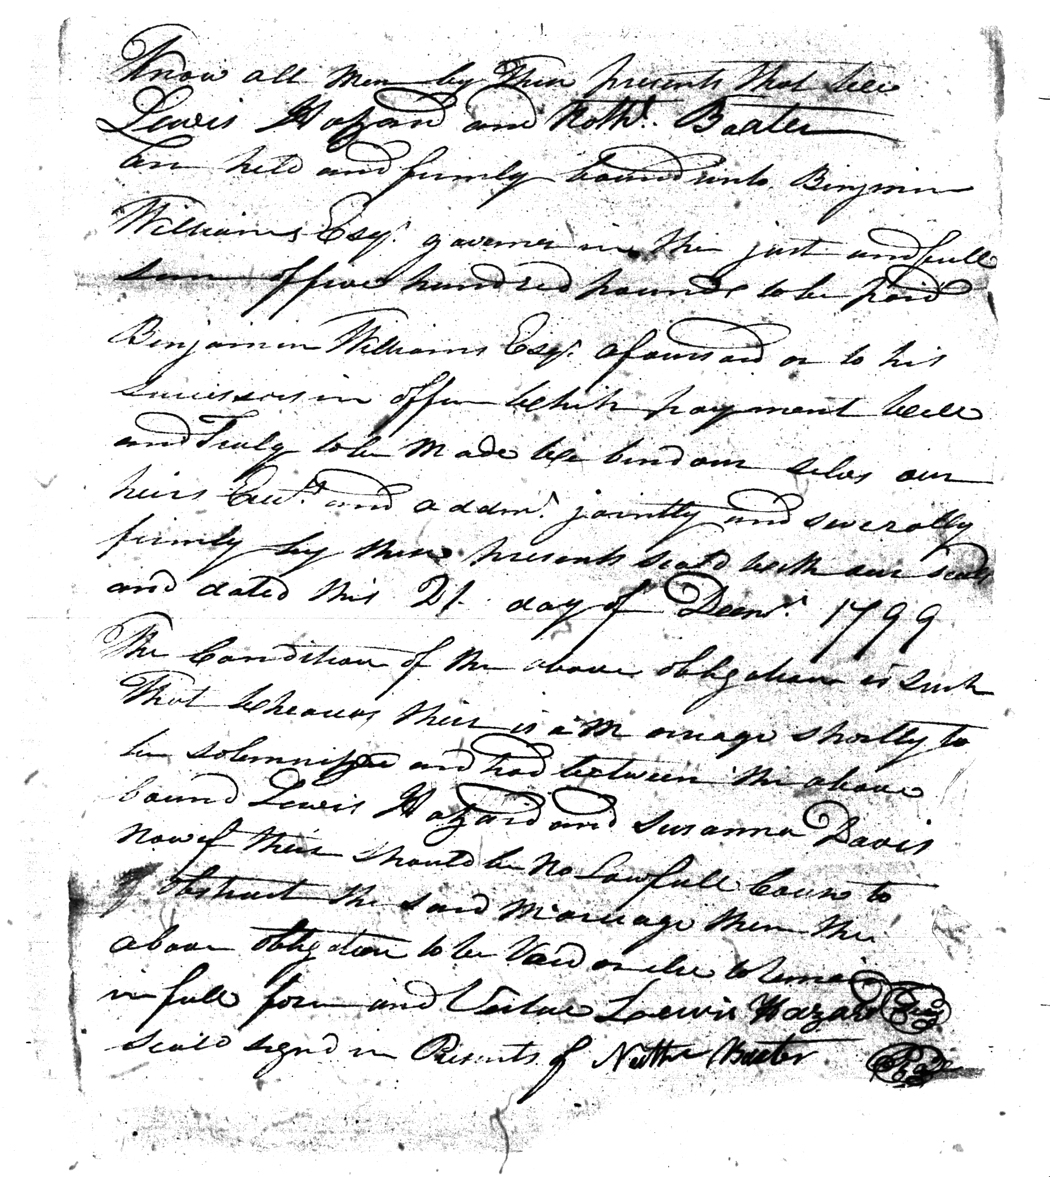 Know all men by These presents that wee
Lewis Hazard and Noth. Baxter
ar held and firmly bound unto Benjmin
Williams, Esqr. governer in the just and full
sum of five hundred pounds to be paid
Benjamin Williams Esqr. afoursaid or to his
successors in office which payment well
and Truly to be Made we bind our selvs our
heirs Exe. and addmr. jointly and severally
firmly by these presents seald with our seals
and dated this day of Decmr. 1799
The Condition of the above obligation is such
That wheareas their is a Marriage shortly to
be solemnized and had between the above
bound Lewis Hazard and Susanna Davis
now if their should be no Lawfull Cause to
obstruct the said Marriage then the
above obligation to be Void or else to remain
in full forse and Vertue Lewis Hazard Seal
seald signd in Presents of Nathn Baxter